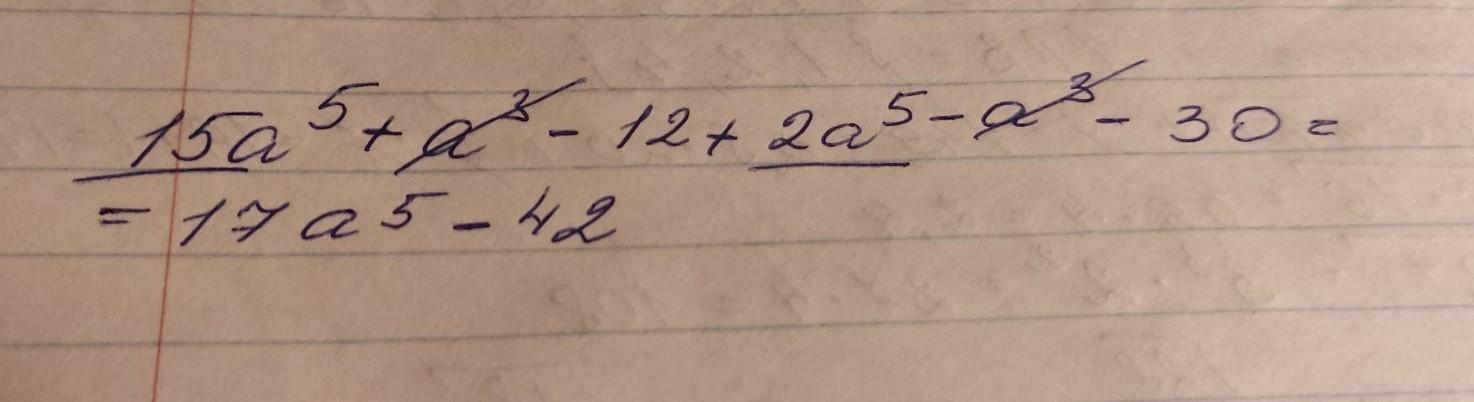 15a⁵ + a³ - 12 + 2a⁵ - a³ - 30 =
= 17a⁵ - 42